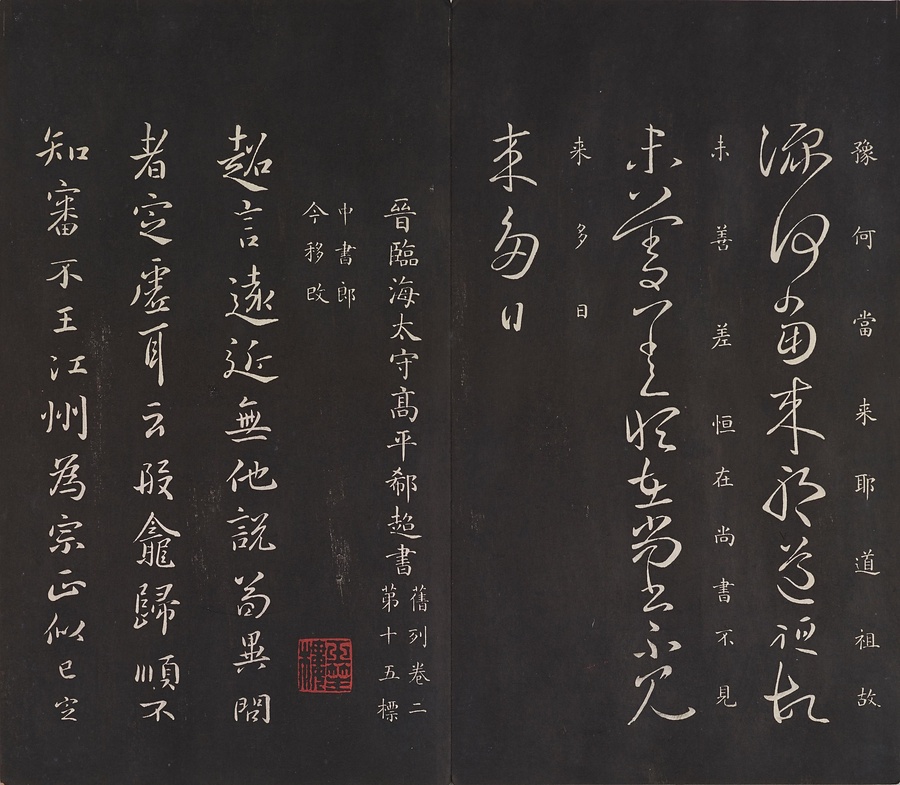 豫何當来耶道祖故
豫何當来耶道祖故
未善差恒在尚書不見
未善差恒在尚書不見
来多日
来多日
晉臨海太守髙平郗超書
舊列卷二
第十五標
中書郎
今移改
超言遠近無他說苟異問
者定虛耳云殷龕歸順不
知審不王江州為宗正似已定